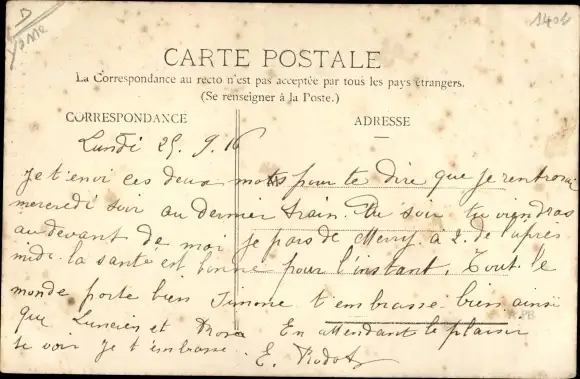 D
Yonne
1408
CARTE POSTALE
La Correspondance au recto n'est pas acceptée par tous les pays étrangers.
(Se renseigner à la Poste.)
CORRESPONDANCE
ADRESSE
Lundi 25. 9. 16
Je t'envoi ces deux mots pour te dire que je rentrerai
mercredi soir au dernier train. Du soir tu viendras
au devant de moi je pars de Merry à 2. de l'après
midi. la santé est bonne pour l'instant. Tout le
monde porte bien Simone t'embrasse bien ainsi
que Luncien et En attendant le plaisir
te voir Je t'embrasse. E.
PB